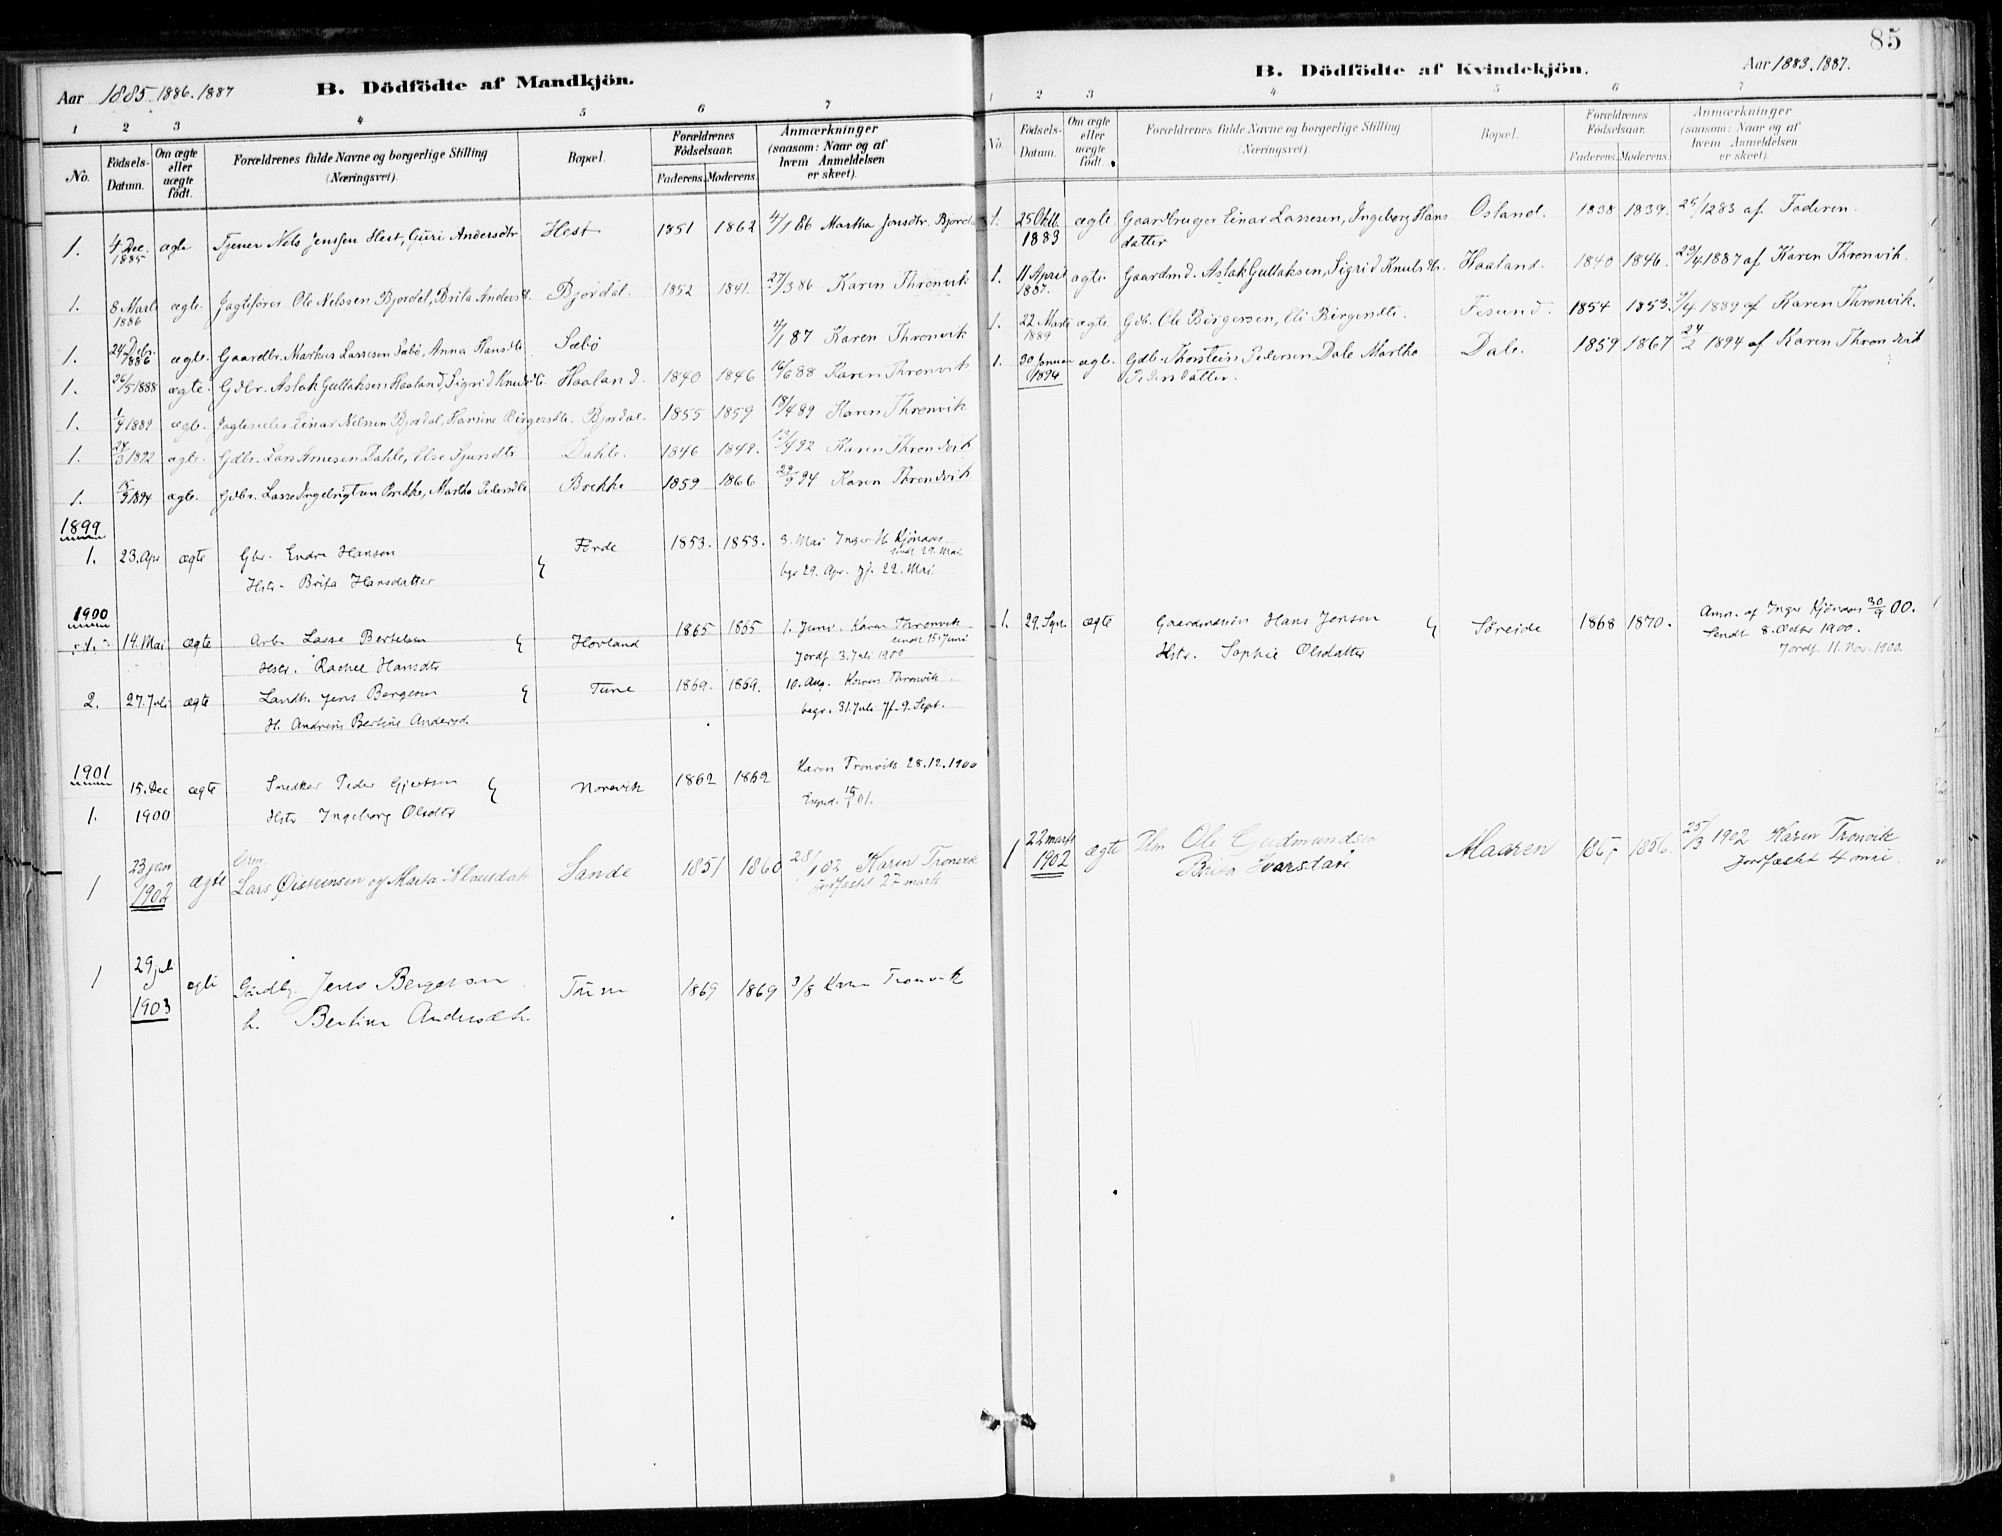 Aar 1885. 1886. 1887
B. Dödfödte af Mandkjön.
1 2 3 4 5 6 7
No.
Födsels-Datum.
Om ægte eller uægte födt.
Forældrenes fulde Navne og borgerlige Stilling (Næringsvei).
Bopæl.
Forældrenes Födselsaar.
Faderens. Moderens.
Anmærkninger (saasom: Naar og af hvem Anmeldelsen er skeet).
1. 4 Dec. 1885 ægte Tjener Nels Jenssen Hest, Guri Andersdtr Hest 1851 1862 4/1 86 Martha Jonsdtr. Bjordal
1. 8 Marts 1886 ægte. Jagtefører Ole Nelssen Bjordal, Brita Andersdt. Bjordal. 1852 1841. 27/3 86 Karen Thronvik
1. 24 Decbr. 1886 ægte. Gaardbr. Markus Lassesen Sæbö, Anna Hansdtr Sæbö 4/1 87 Karen Thronvik
1. 26/5 1888 ægte. Gdbr. Aslak Gullaksen Haaland, Sigrid Knudsdtr. Haaland. 1840 1846 16/6 88 Karen Thronvik
1. 1/4 1889 ægte. Jagteseiler Einar Nelssen Bjordal, Karine Birgersdtr. Bjordal. 1855 1859 18/4 89 Karen Thronvik
1. 24/3 1892 ægte. Gdbr. Lars Arnesen Dahle, Else Sjursdtr Dahle. 1846 1848. 13/4 92 Karen Throndvik
1. 18/9 1894 ægte. Gdbr. Lasse Ingebrigtsen Brekke, Martha Pedersdtr Brekke 1859 1866 29/9 94 Karen Throndvik
1899
1. 23. Apr ægte Gbr. Endre Hansen Förde 1853. 1853. 3. Mai Inger H. Kjönaas
sendt 29. Mai
Hstr. Brita Hansdatter bgr 29. Apr. Jf. 22. Mai
1900
1. 14. Mai ægte Arb. Lasse Bertelsen Hovland 1865 1865 1. Juni. Karen Thronvik
sendt 15. Juni
Hstr. Rachel Hansdtr Jordf. 3. Juli 1900
2. 27. Juli ægte Landh. Jens Bergesen Tune 1869. 1869. 10. Aug. Karen Thronvik.
H. Andrine Bertine Andersd. begr. 31. Juli Jf. 9. Sept.
1901
1. 15. Dec 1900 ægte Snedker Peder Gjertsen Norevik 1862 1862 Karen Tronvik 28.12.1900
Hstr Ingeborg Olsdtr
1 23 jan 1902 ægte Grm. Lars Øisteinsen og Marta Klausdat Sande 1851 1860 28/1 02 Karen Tronvik
jordfæstet 27 marts
1 29 juli 1903 ægte Gardbr. Jens Bergesen Tune 1869 1869 3/8 Karen Tronvik
h. Bertine Andersdtr.
85
B. Dödfödte af Kvindekjön.
Aar 1883. 1887.
1 2 3 4 5 6 7
No.
Födsels-Datum.
Om ægte eller uægte födt.
Forældrenes fulde Navne og borgerlige Stilling (Næringsvei).
Bopæl.
Forældrenes Födselsaar.
Faderens. Moderens.
Anmærkninger (saasom: Naar og af hvem Anmeldelsen er skeet).
1. 25 Oktb. 1883 ægte. Gaardbruger Einar Lassesen, Ingeborg Hansdatter Osland. 1838 1839. 25/12 83 af Faderen.
1. 11 April 1887. ægte Gaardmd. Aslak Gullaksen, Sigrid Knutsdtr. Haaland. 1840 1846. 29/4 1887 af Karen Thronvik.
1. 22 Marts 1889 ægte. Gdb. Ole Birgersen, Eli Birgersdtr. Tesund. 1854 1853. 9/4 1889 af Karen Thronvik.
1. 30 Januar 1894 ægte. Gdbr. Thorstein Pedersen Dale Martha Pedersdatter. Dale. 1859 1867 24/2 1894 af Karen Throndvik
1. 29. Spt. ægte Gaardmand Hans Jensen Søreide 1868 1870. Anm. af Inger Kjönaas 30/9 00.
Hstr. Sophie Olsdatter Sendt 8. Octbr 1900.
Jordf. 11. Nov. 1900.
1 22 marts 1902 ægte Ole Gudmundsen Maaren 1867 1856 25/3 1902 Karen Tronvik
Brita Ivarsdatr jordfæstet 4 mai